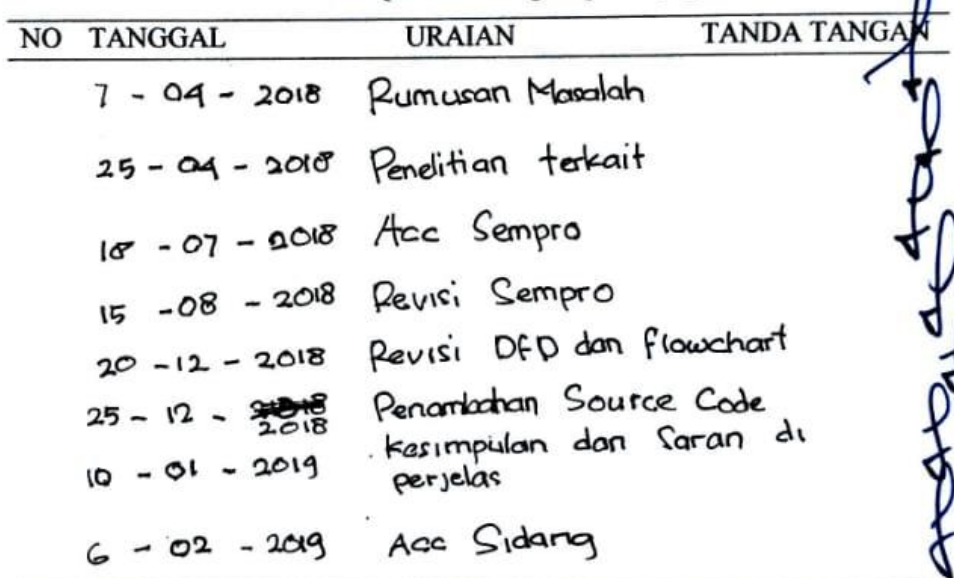 NO TANGGAL URAIAN TANDA TANGAN
7 - 04 - 2018 Rumusan Masalah
25 - 04 - 2018 Penelitian terkait
18 - 07 - 2018 Acc Sempro
15 - 08 - 2018 Revisi Sempro
20 - 12 - 2018 Revisi DFD dan flowchart
25 - 12 - 2018 Penambahan Source Code
10 - 01 - 2019 Kesimpulan dan Saran di
perjelas
6 - 02 - 2019 Acc Sidang